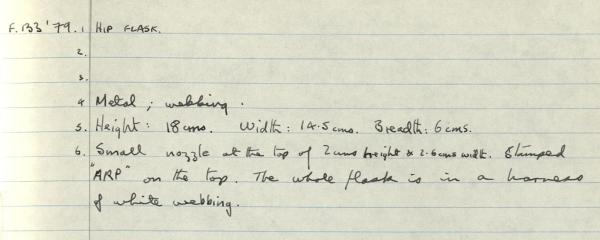 F.133 '79. 1 HIP FLASK.
2.
3.
4 Metal ; webbing .
5. Height : 18cms. Width : 14.5cms. Breadth : 6cms.
6. Small nozzle at the top of 2cms height & 2.6cms width. Stamped
"ARP" on the top. The whole flask is in a harness
of white webbing.